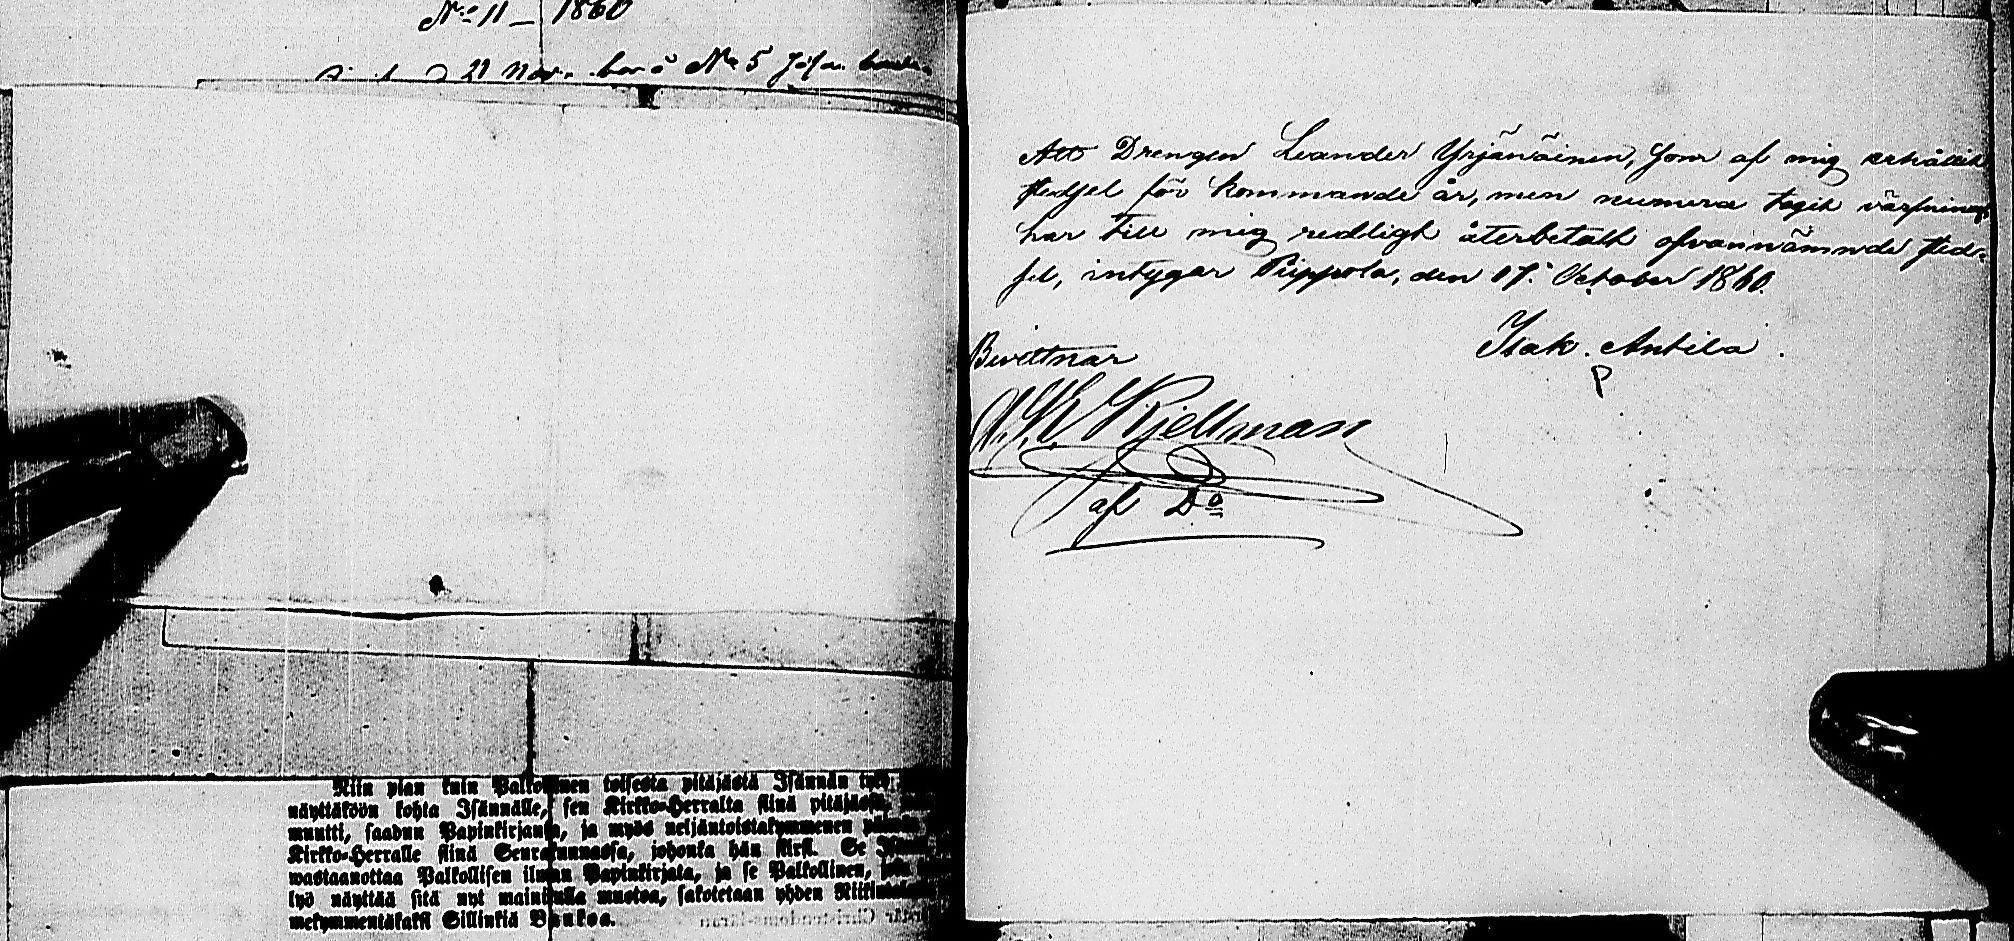 No 11 – 1860
21 Nov. No 5
Att Drengen Leander Yrjänäinen, som af mig erhållit
stedsel för kommande år, men numera tagit värfning
har till mig redligt återbetalt ofvannämnde sted-
sel, intygar Pippola, den 17. October 1860.
Isak. Antila.
Bevittnar
Kjellman
af Do
Niin pian kuin Palkollinen toisesta pitäjästä Isännän
näyttäköön kohta Isännälle, sen Kirkko-Herralta siinä pitäjässä,
muutti, saadun Papinkirjansa, ja myös neljäntoistakymmenen
Kirkko-Herralle siinä Seurakunnassa, johonka hän siirs. Se
wastaanottaa Palkollisen ilman Papinkirjata, ja se Palkollinen,
lyö näyttää sitä nyt mainitulla muotoa, sakotetaan yhden
mekymmentäkaksi Sillinkiä Bankoa.